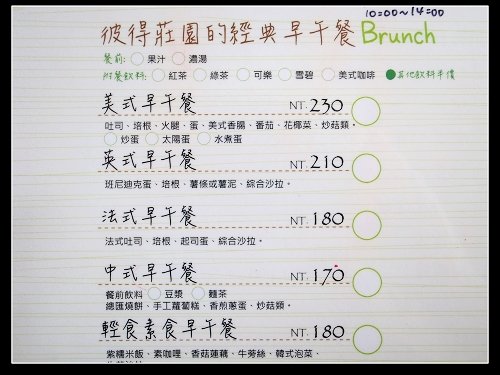 10:00~14:00
彼得莊園的經典早午餐 Brunch
餐前: 果汁 濃湯
附餐飲料: 紅茶 綠茶 可樂 雪碧 美式咖啡 其他飲料半價
美式早午餐 NT.230
吐司、培根、火腿、蛋、美式香腸、番茄、花椰菜、炒菇類。
炒蛋 太陽蛋 水煮蛋
英式早午餐 NT.210
班尼迪克蛋、培根、薯條或薯泥、綜合沙拉。
法式早午餐 NT.180
法式吐司、培根、起司蛋、綜合沙拉。
中式早午餐 NT.170
餐前飲料 豆漿 麵茶
總匯燒餅、手工蘿蔔糕、香煎蔥蛋、炒菇類。
輕食素食早午餐 NT.180
紫糯米飯、素咖哩、香菇蓮藕、牛蒡絲、韓式泡菜、